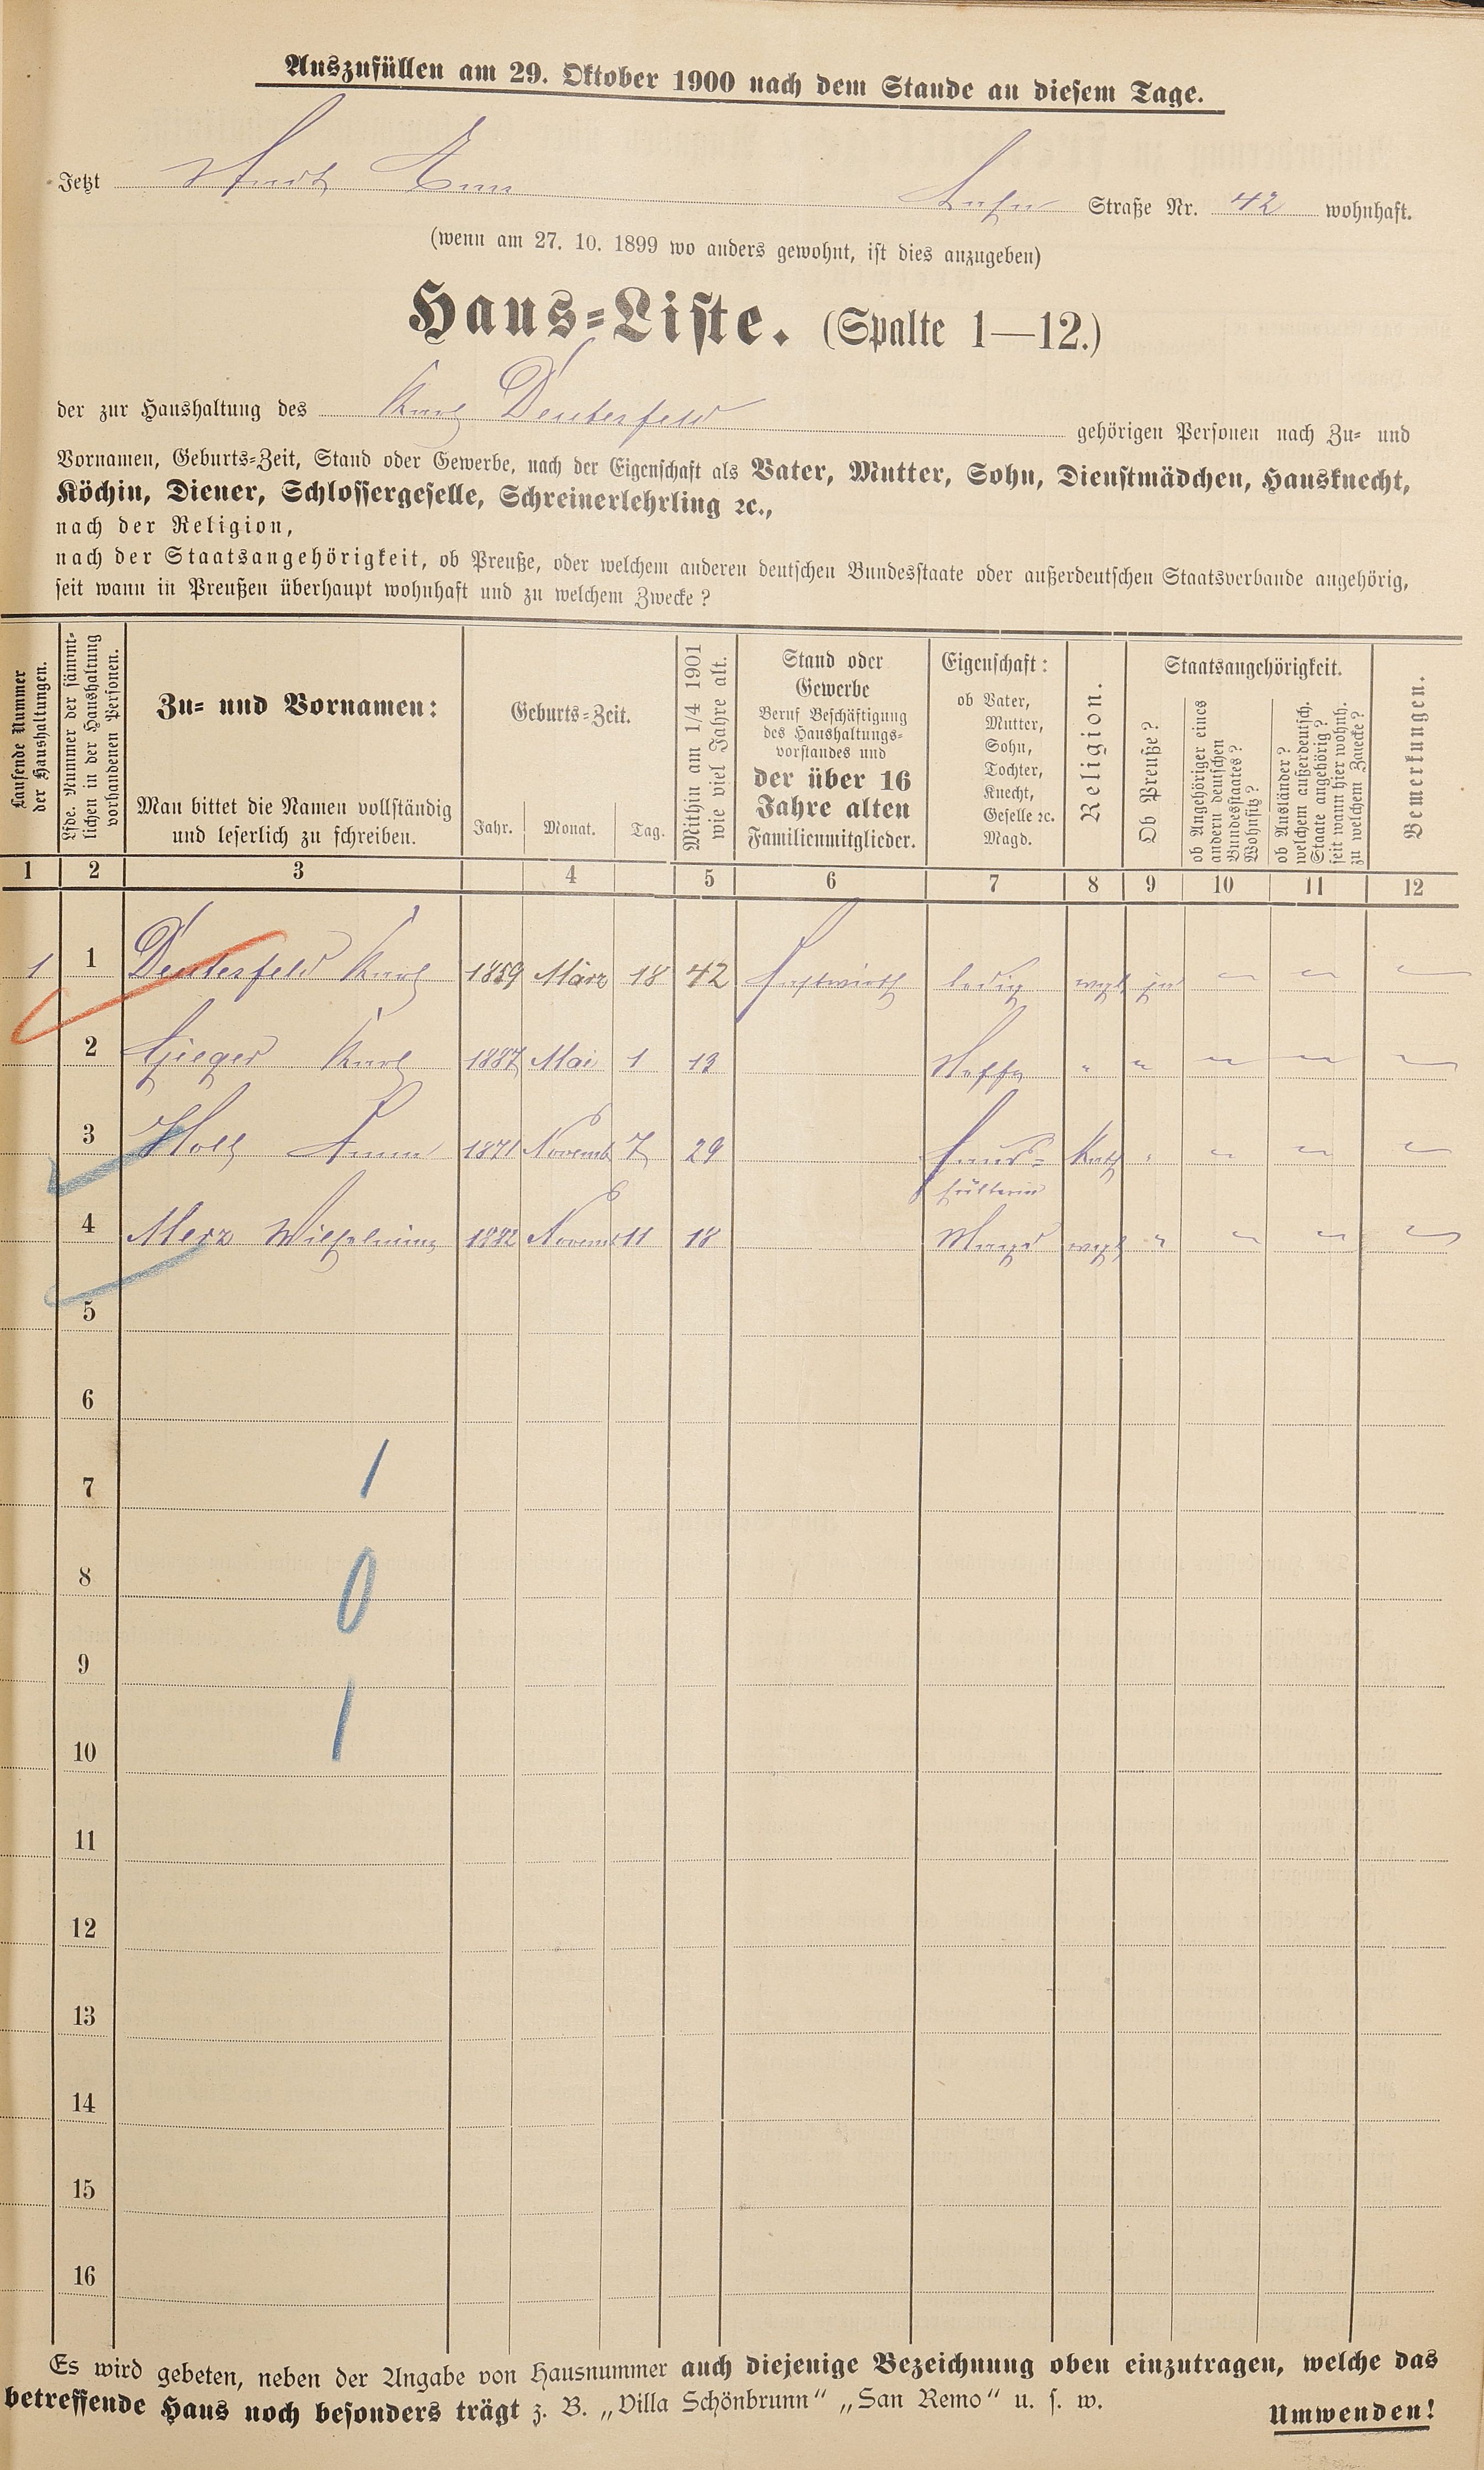 Auszufüllen am 29. Oktober 1900 nach dem Stande an diesem Tage.
Jetzt Stadt Ems Lahn Straße Nr. 42 wohnhaft.
(wenn am 27. 10. 1899 wo anders gewohnt, ist dies anzugeben)
Haus=Liste. (Spalte 1—12.)
der zur Haushaltung des Karl Deusterfeld gehörigen Personen nach Zu= und
Vornamen, Geburts=Zeit, Stand oder Gewerbe, nach der Eigenschaft als Vater, Mutter, Sohn, Dienstmädchen, Hausknecht,
Köchin, Diener, Schlossergeselle, Schreinerlehrling ꝛc.,
nach der Religion,
nach der Staatsangehörigkeit, ob Preuße, oder welchem anderen deutschen Bundesstaate oder außerdeutschen Staatsverbande angehörig,
seit wann in Preußen überhaupt wohnhaft und zu welchem Zwecke?
Laufende Nummer
der Haushaltungen.
Lfde. Nummer der sämmt=
lichen in der Haushaltung
vorhandenen Personen.
Zu= und Vornamen:
Man bittet die Namen vollständig
und leserlich zu schreiben.
Geburts=Zeit.
Jahr. Monat. Tag.
Mithin am 1/4 1901
wie viel Jahre alt.
Stand oder
Gewerbe
Beruf Beschäftigung
des Haushaltungs=
vorstandes und
der über 16
Jahre alten
Familienmitglieder.
Eigenschaft:
ob Vater,
Mutter,
Sohn,
Tochter,
Knecht,
Geselle ꝛc.
Magd.
Religion.
Staatsangehörigkeit.
Ob Preuße?
ob Angehöriger eines
andern deutschen
Bundesstaates?
Wohnsitz?
ob Ausländer?
welchem außerdeutsch.
Staate angehörig?
seit wann hier wohnh.
zu welchem Zwecke?
Bemerkungen.
1 2 3 4 5 6 7 8 9 10 11 12
1 1 Deusterfeld Karl 1859 März 18 42 Gastwirth ledig evgl ja " " "
2 Karl 1887 Mai 1 13 Neffe " " " " "
3 Holl Anna 1871 Novemb 7 29 Haus=
hälterin Kath " " " "
4 Merz Wilhelmine 1882 Novemb 11 18 Magd evgl " " " "
5
6
7 1
8 0
9
10 1
11
12
13
14
15
16
Es wird gebeten, neben der Angabe von Hausnummer auch diejenige Bezeichnung oben einzutragen, welche das
betreffende Haus noch besonders trägt z. B. „Villa Schönbrunn“ „San Remo“ u. s. w.
Umwenden!